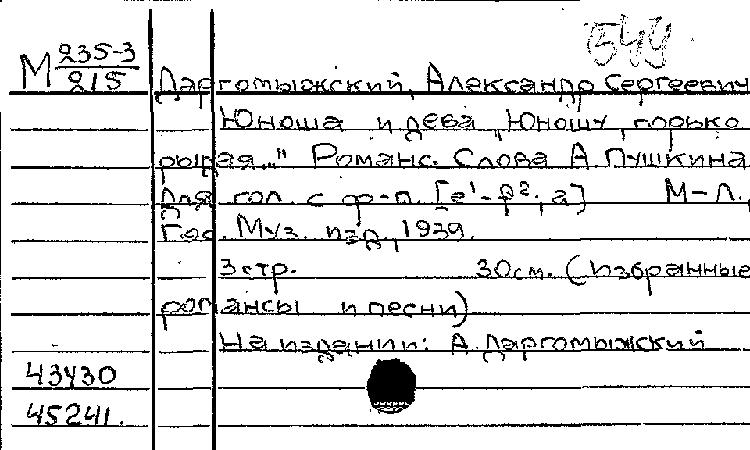 549
М 235-3/215
Даргомыжский, Александр Сергеевич
Юноша и дева „Юношу, горько
рыдая..." Романс. Слова А. Пушкина
Для гол. с ф-п. [e¹-f²; a] М-Л.,
Гос. Муз. изд., 1939.
3 стр. 30 см. (Избранные
романсы и песни)
На издании: А. Даргомыжский
43430
45241.